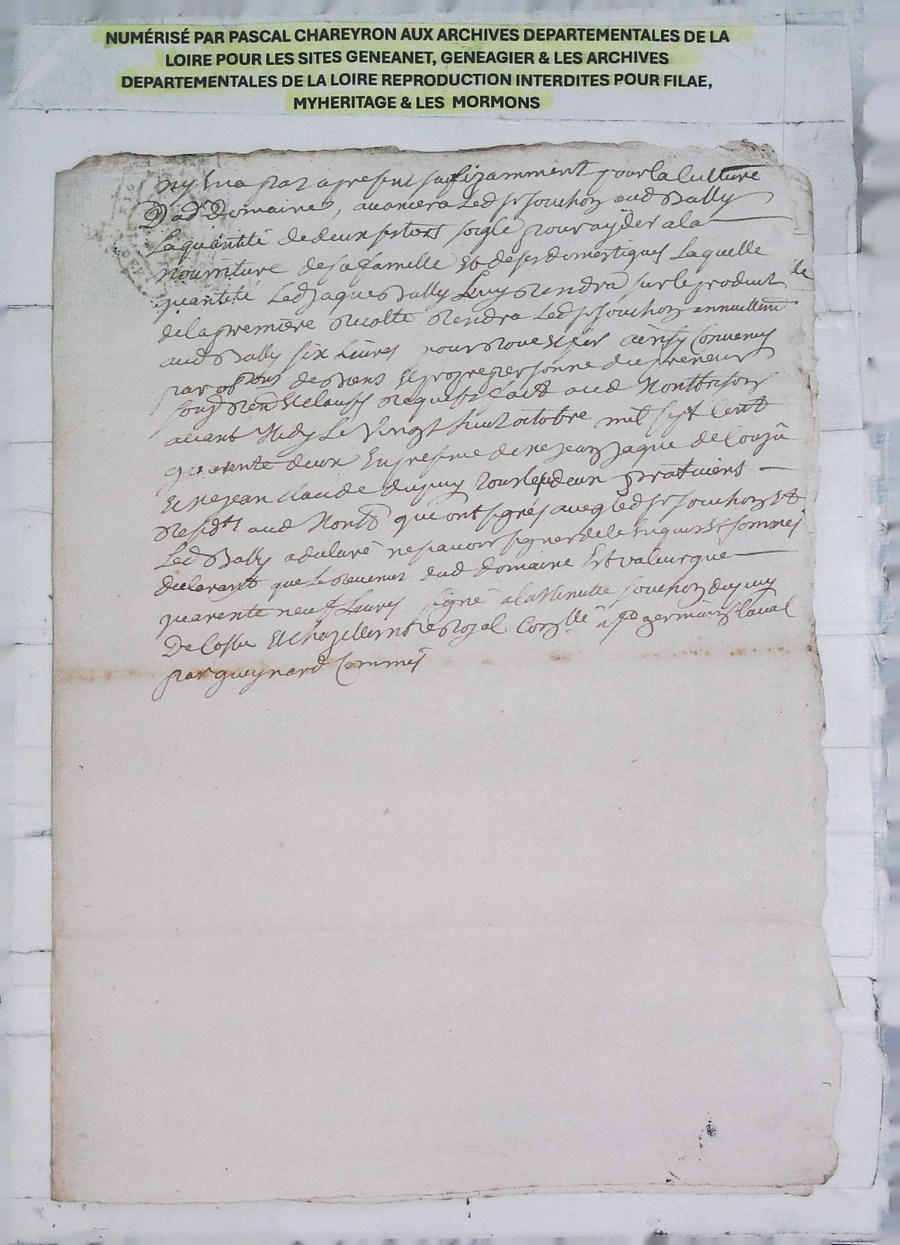 NUMÉRISÉ PAR PASCAL CHAREYRON AUX ARCHIVES DEPARTEMENTALES DE LA
LOIRE POUR LES SITES GENEANET, GENEAGIER & LES ARCHIVES
DEPARTEMENTALES DE LA LOIRE REPRODUCTION INTERDITES POUR FILAE,
MYHERITAGE & LES MORMONS
ny en a pas a present sufizamment pour la Culture
Dud Domaine, avancera Led sr souchon aud Bally
La quantité de deux soigle pour ayder a la
nouriture de sa famille Et de ses domestiques Laquelle
quantité Led Jaques Bally Luy rendra sur le produit de
de la premiere recolte rendra Led sr souchon annuellemt
aud Bally six Livres pour ainsy Convenu
par de Biens Et propre personne du preneur
soub Renon Et clauses requises fait aud Montbrison
avant Midy Le Vingt huit octobre mil sept Cent
quarente deux En presence de me Jean Jaque de
Et me Jean Claude dupuy tous les deux pratuiens
Residts aud Montb qui ont signés aveq led sr souchon Et
Led Bally a declaré ne sçavoir signer de ce Enquis Et sommés
declarant que Le revenus dud domaine Est valeur que
quarente neuf Livres signé a la Minutte souchon dupuy
De Et Chazelle nre Royal Conlle à st germain Laval
par gueynard Commis